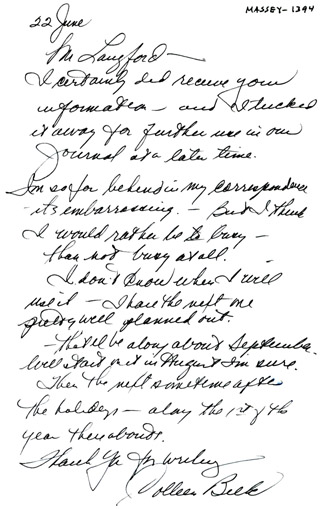 MASSEY-1394
22 June
Mr Langford —
I certainly did receive your
information — and I tucked
it away for further use in our
Journal at a later time.
I'm so far behind in my correspondence
its embarrassing. — But I think
I would rather be busy —
than not busy at all.
I don't know when I will
use it — I have the next one
pretty well planned out.
— that'll be along about September.
Will start on it in August I'm sure.
Then the next sometime after
the holidays — along the 1st of the
year thereabouts.
Thank you for writing
Colleen Beck